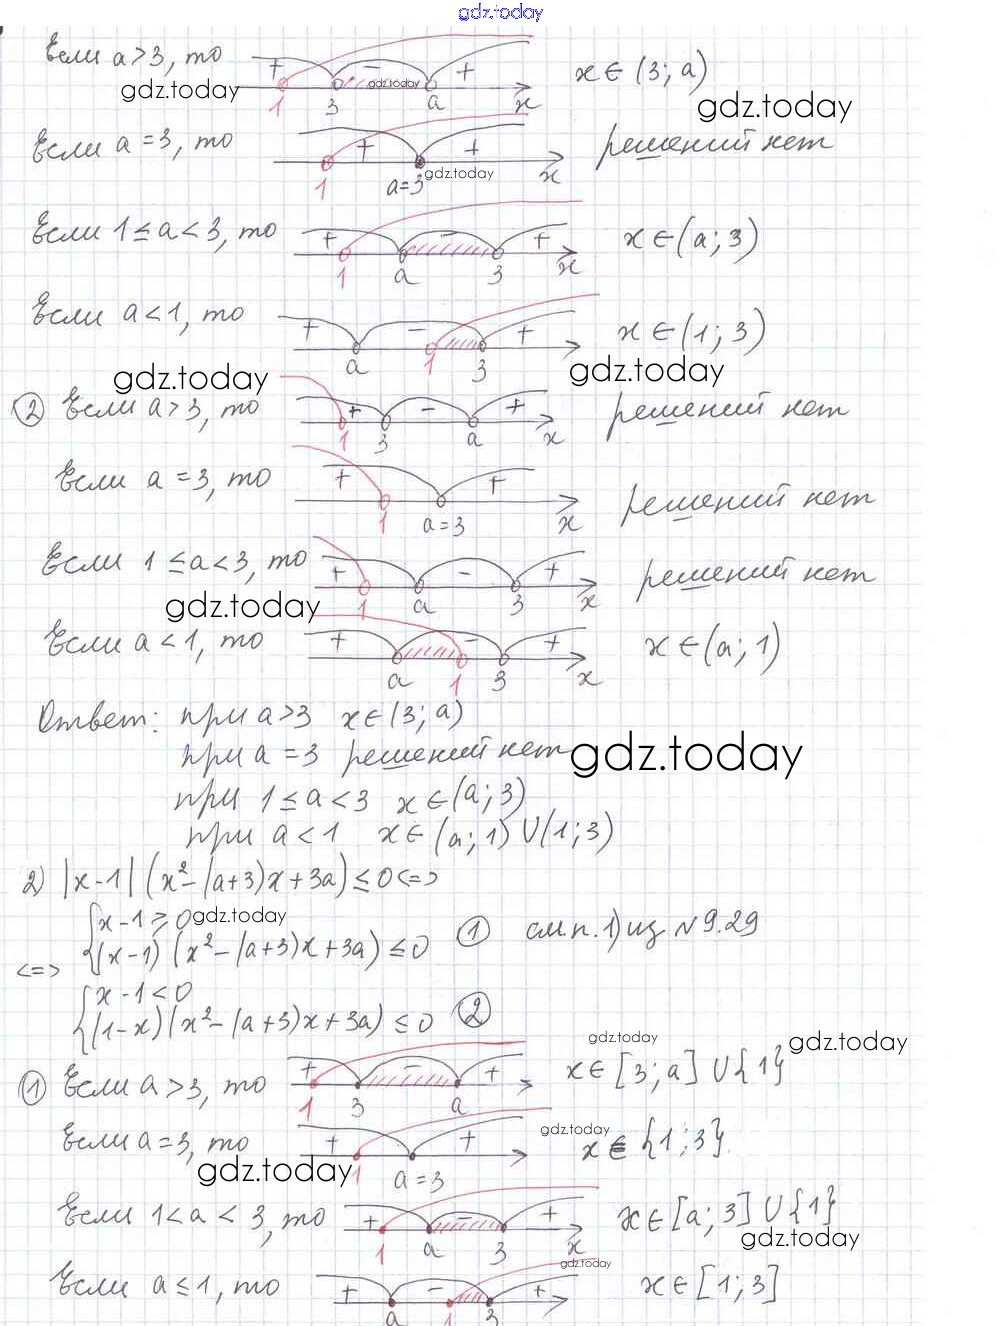 gdz.today
Если a>3, то + − + 1 3 a x x∈(3; a)
gdz.today gdz.today gdz.today
Если a=3, то + + 1 a=3 x решений нет
gdz.today
Если 1≤a<3, то + − + 1 a 3 x x∈(a; 3)
Если a<1, то + − + a 1 3 x∈(1; 3)
gdz.today gdz.today
② Если a>3, то + − + 1 3 a x решений нет
Если a=3, то + + 1 a=3 x решений нет
Если 1≤a<3, то + − + 1 a 3 x решений нет
gdz.today
Если a<1, то + − + a 1 3 x x∈(a; 1)
Ответ: при a>3 x∈(3; a)
при a=3 решений нет
gdz.today
при 1≤a<3 x∈(a; 3)
при a<1 x∈(a; 1)∪(1; 3)
2) |x-1|(x²-(a+3)x+3a)≤0 <=>
{x-1≥0 gdz.today
<=> {(x-1)(x²-(a+3)x+3a)≤0 ① см.п.1) из №9.29
{x-1<0
{(1-x)(x²-(a+3)x+3a)≤0 ②
gdz.today gdz.today
① Если a>3, то + − + 1 3 a x∈[3; a]∪{1}
Если a=3, то + + 1 a=3 x∈{1; 3}.
gdz.today gdz.today
Если 1<a<3, то + − + 1 a 3 x x∈[a; 3]∪{1}
gdz.today
Если a≤1, то + − + a 1 3 x∈[1; 3]
gdz.today